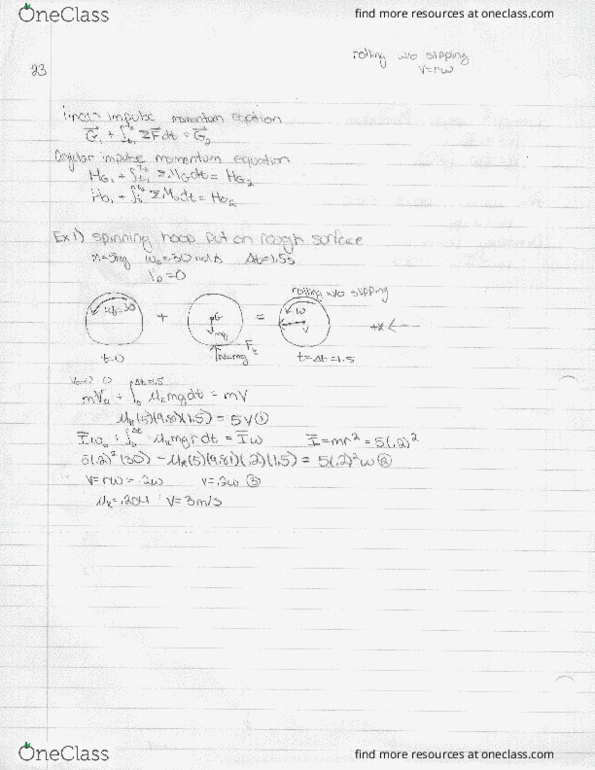 OneClass
find more resources at oneclass.com
rolling w/o slipping
V=rω
23
linear impulse momentum eqation
G⃗₁ + ∫ΣF⃗dt = G⃗₂
Angular impulse momentum equation
HG₁ + ∫ΣMGdt = HG₂
Ho₁ + ∫ΣModt = Ho₂
Ex 1) spinning hoop put on rough surface
m=5kg ω₀=30 rad/s Δt=1.5s
V₀=0
rolling w/o slipping
ω₀=30 + G mg = ω V +x ←
t=0 N=mg t=Δt=1.5
mV₀ + ∫ μₖmgdt = mV
μₖ(5)(9.81)(1.5) = 5V ①
I̅ω₀ + ∫ -μₖmgrdt = I̅ω I̅=mr²=5(.2)²
5(.2)²(30) - μₖ(5)(9.81)(.2)(1.5) = 5(.2)²ω ②
V=rω=.2ω V=.2ω ③
μₖ=.204 V=3m/s
OneClass
find more resources at oneclass.com